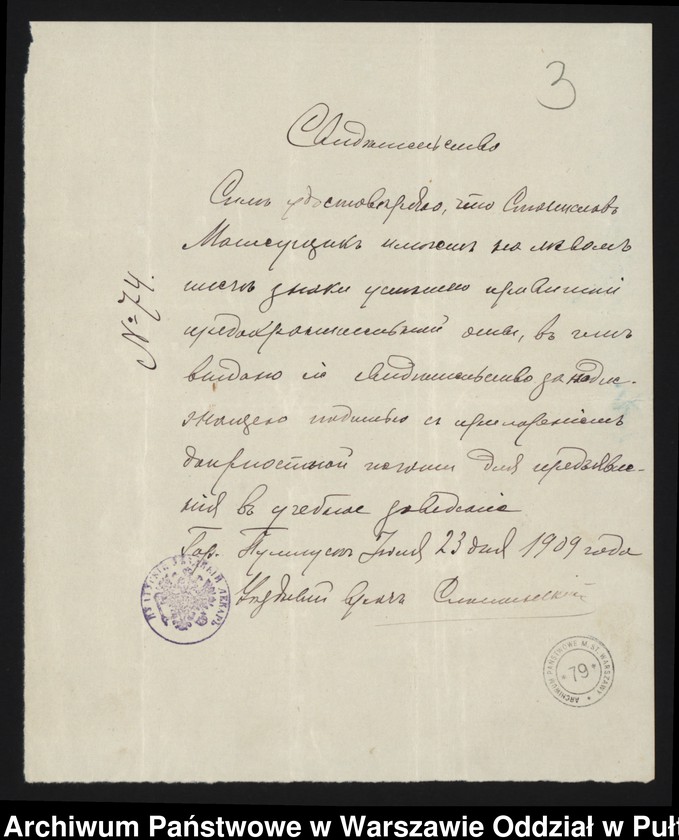 3
Свидѣтельство
Симъ удостовѣряю, что Станиславъ
имѣетъ на лѣвомъ
плечѣ знаки успешно привитой
предохранительной оспы, въ чемъ
выдано и свидѣтельство за надле-
жащею подписью съ приложеніемъ
должностной печати для предъявле-
нія въ учебное заведеніе
Гор. Пултускъ Іюля 23 дня 1909 года
Уѣздный врачъ
№ 74.
ПУЛТУСКІЙ УѢЗДНЫЙ ЛЕКАРЬ
ARCHIWUM PAŃSTWOWE M. ST. WARSZAWY
* 79 *
Archiwum Państwowe w Warszawie Oddział w Puł